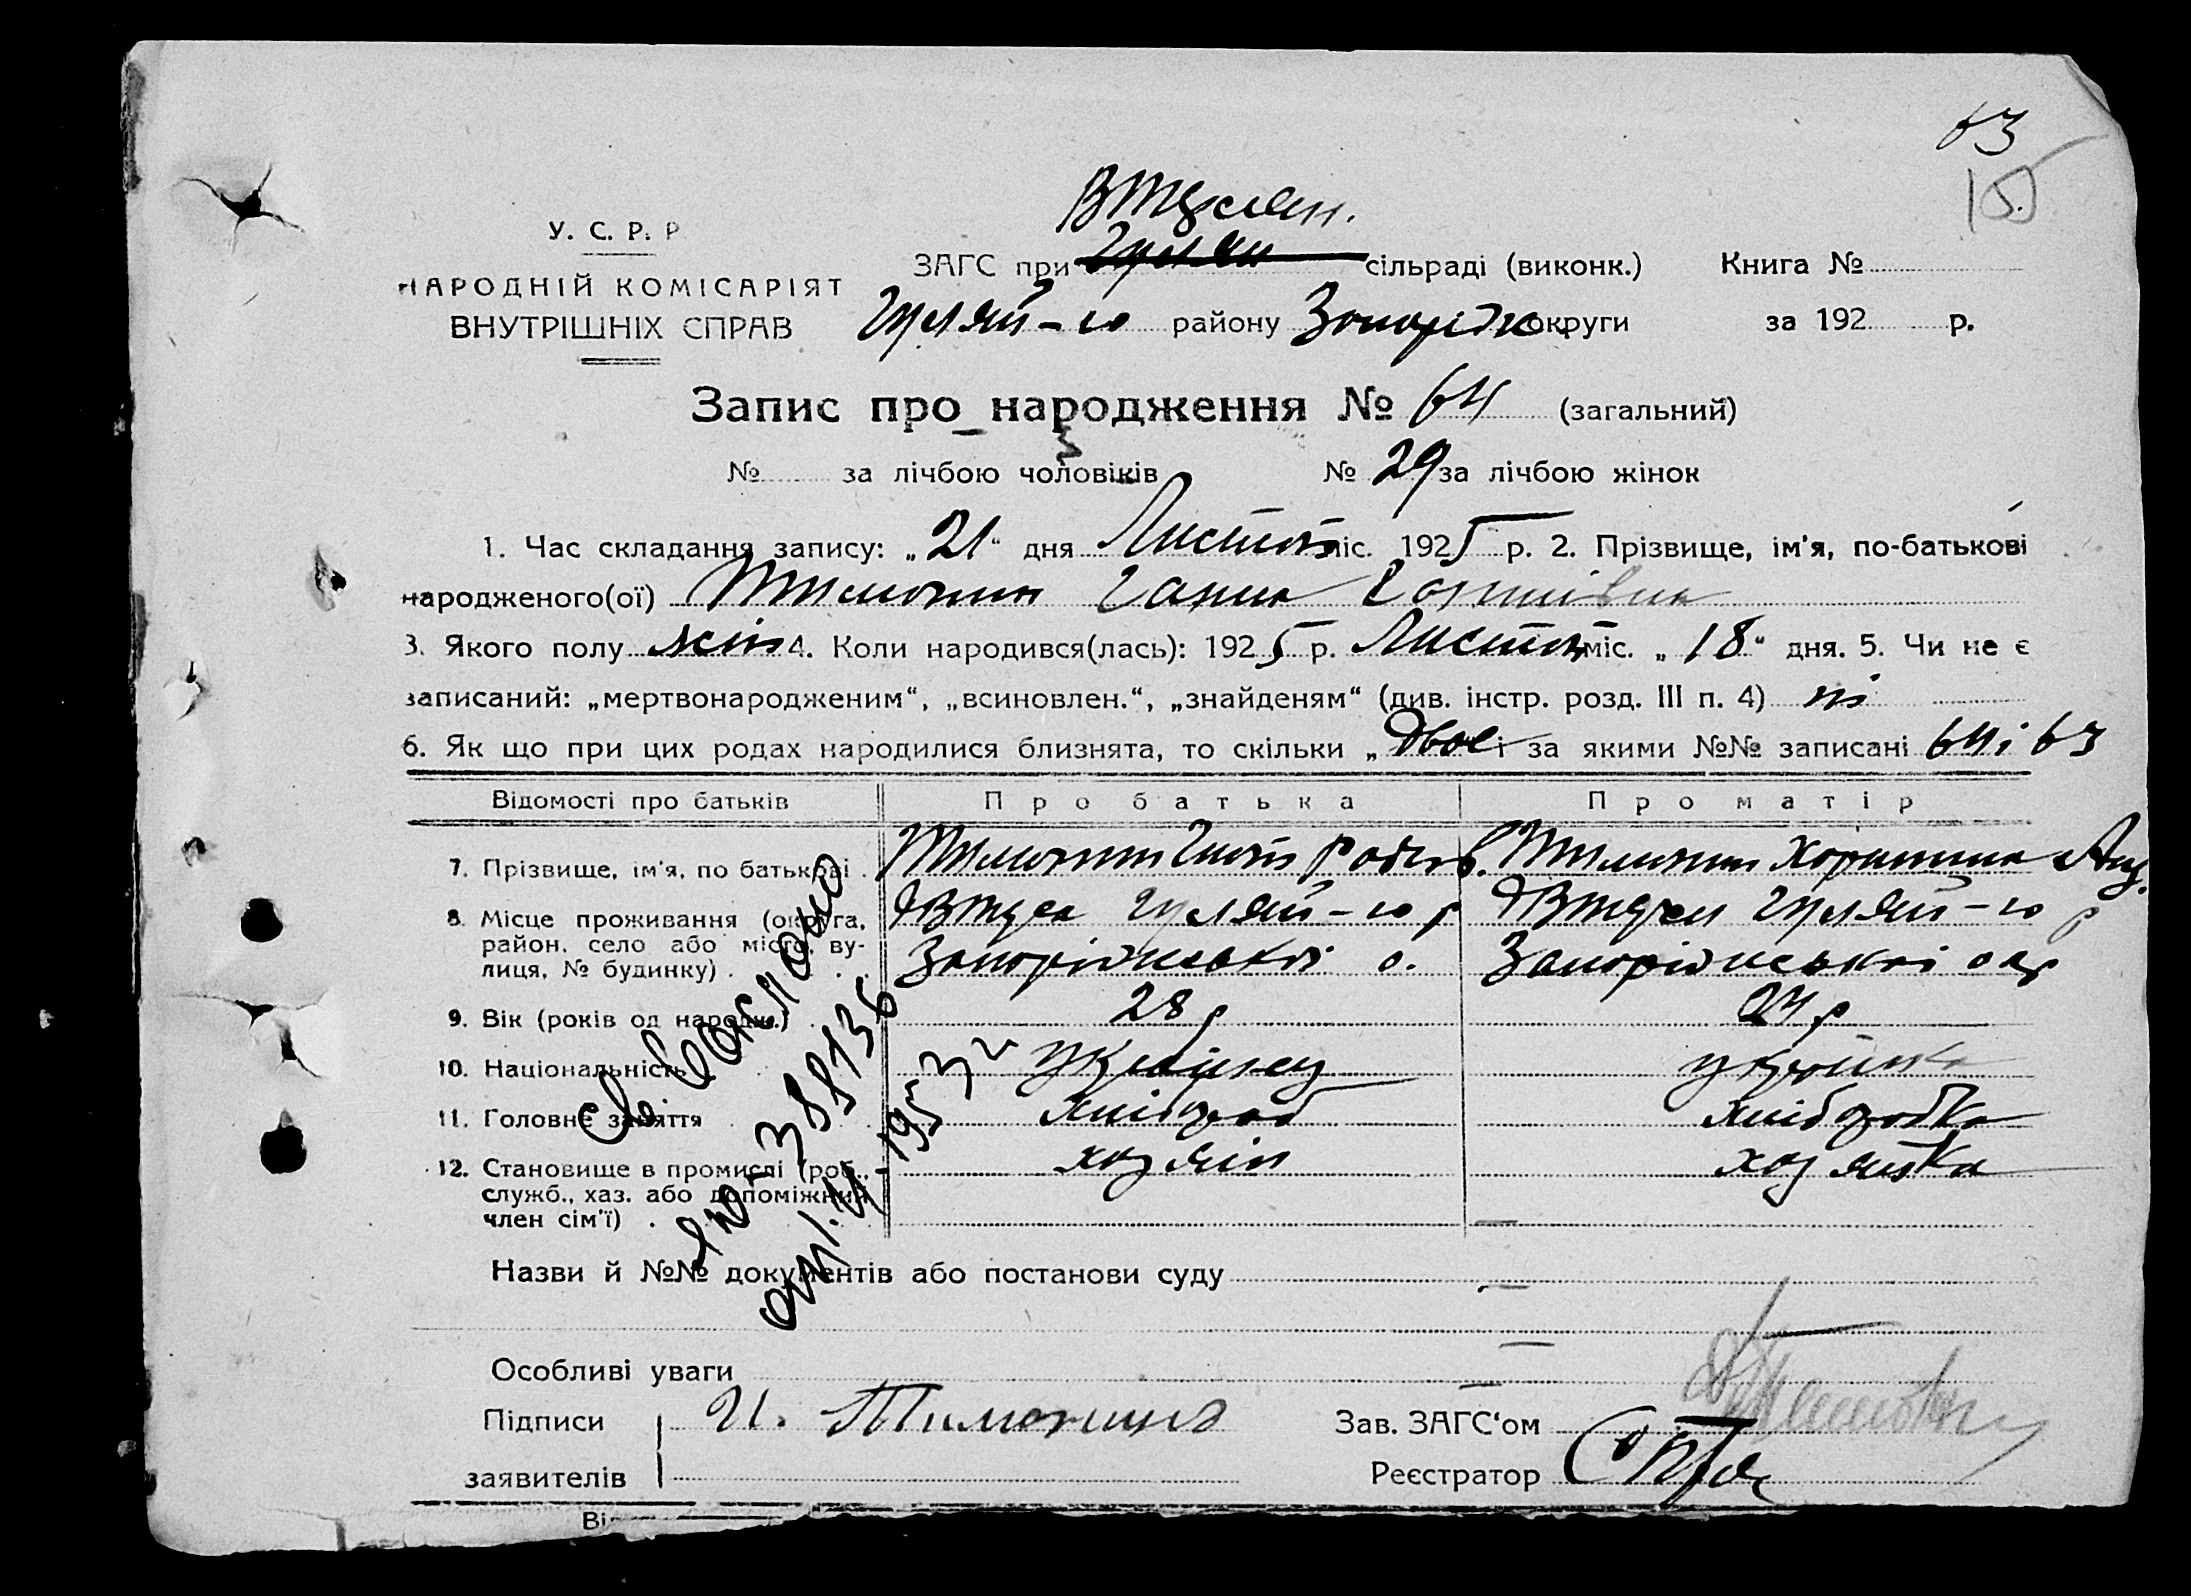 63
15
У. С. Р. Р
НАРОДНІЙ КОМІСАРІЯТ
ВНУТРІШНІХ СПРАВ
ЗАГС при Гуляй сільраді (виконк.) Книга №
Гуляй-го району Запоріж округи за 192 р.
Запис про народження № 64 (загальний)
№ за лічбою чоловіків № 29 за лічбою жінок
1. Час складання запису: „21“ дня Листоп міс. 1925 р. 2. Прізвище, ім'я, по-батькові
народженого(ої) Тимошин Ганна
3. Якого полу жін 4. Коли народився(лась): 1925 р. Листоп міс. „18“ дня. 5. Чи не є
записаний: „мертвонародженим“, „всиновлен.“, „знайденям“ (див. інстр. розд. III п. 4) ні
6. Як що при цих родах народилися близнята, то скільки „двоє і за якими №№ записані 64 і 63
Відомості про батьків Про батька Про матір
7. Прізвище, ім'я, по батькові Тимошин Тимошин
8. Місце проживання (округа, район, село або місто, вулиця, № будинку) Гуляй-го р Гуляй-го р
Запоріжської о. Запоріжської окр
9. Вік (років од народж.) 28 р 24 р
10. Національність українец україінка
11. Головне заняття хлібороб хліборобка
12. Становище в промислі (роб.,
служб., хаз. або допоміжний
член сім'ї)
хозяін хозяйка
Св выслано
ЯЮ-388136
от 1.IV-1953 г
Назви й №№ документів або постанови суду
Особливі уваги
Підписи И. Тимошин Зав. ЗАГС'ом
заявителів Реєстратор